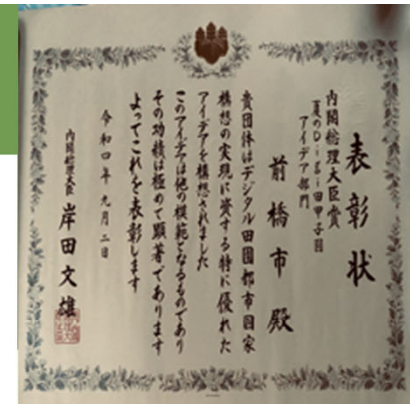 表彰状
内閣総理大臣賞
夏のDigi田甲子園
アイデア部門
前橋市殿
貴団体はデジタル田園都市国家
構想の実現に資する特に優れた
アイデアを構想されました
このアイデアは他の模範となるものであり
その功績は極めて顕著であります
よってこれを表彰します
令和四年九月二日
内閣総理大臣 岸田文雄